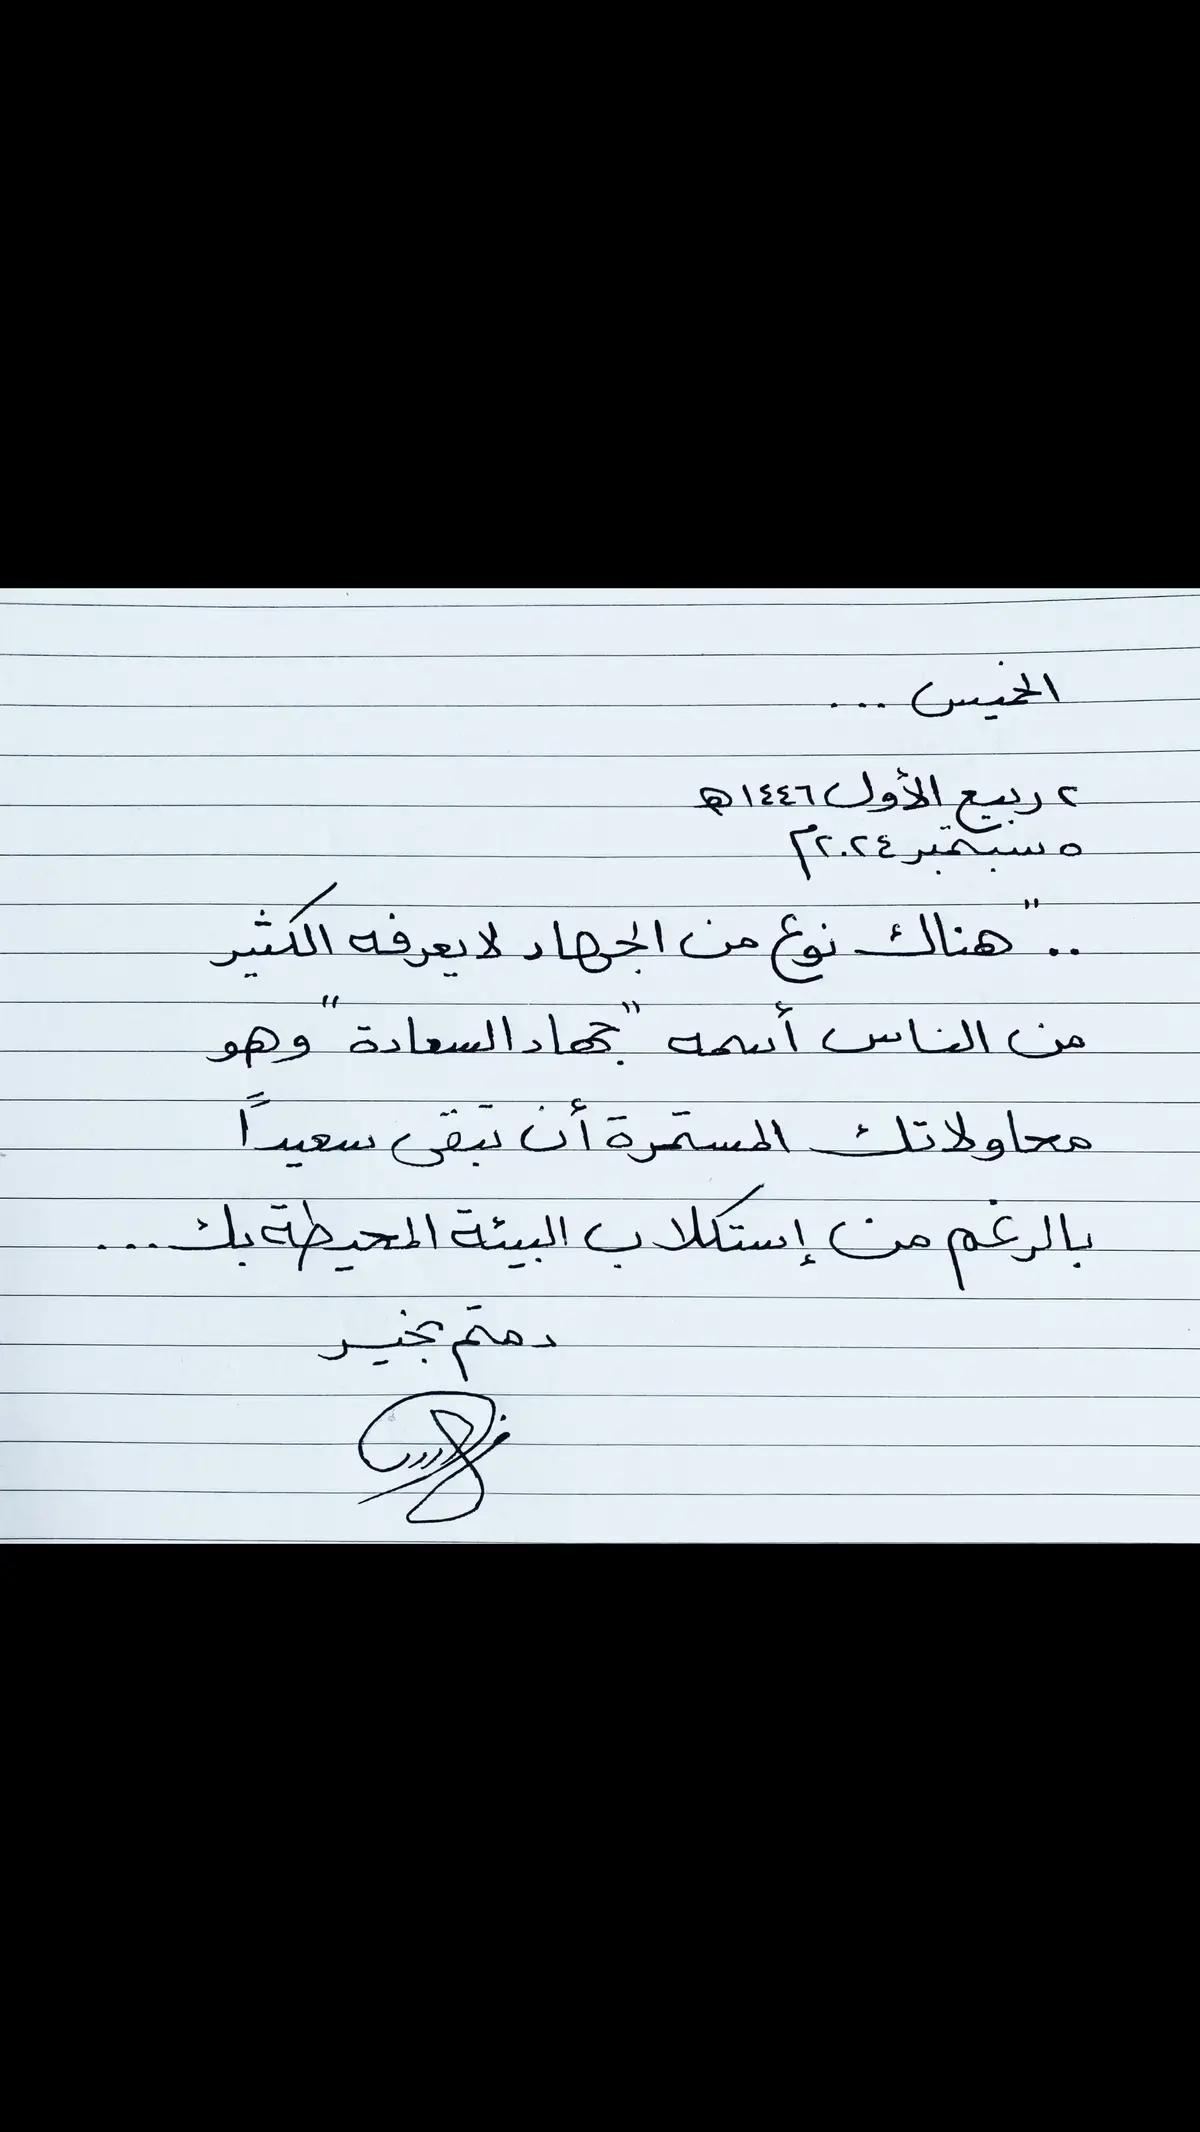 الخميس ...
٢ ربيع الأول ١٤٤٦ه
٥ سبتمبر ٢٠٢٤م
.. "هناك نوع من الجهاد لا يعرفه الكثير
من الناس أسمه "جهاد السعادة" وهو
محاولاتك المستمرة أن تبقى سعيداً
بالرغم من إستكلاب البيئة المحيطة بك...
دمتم بخير